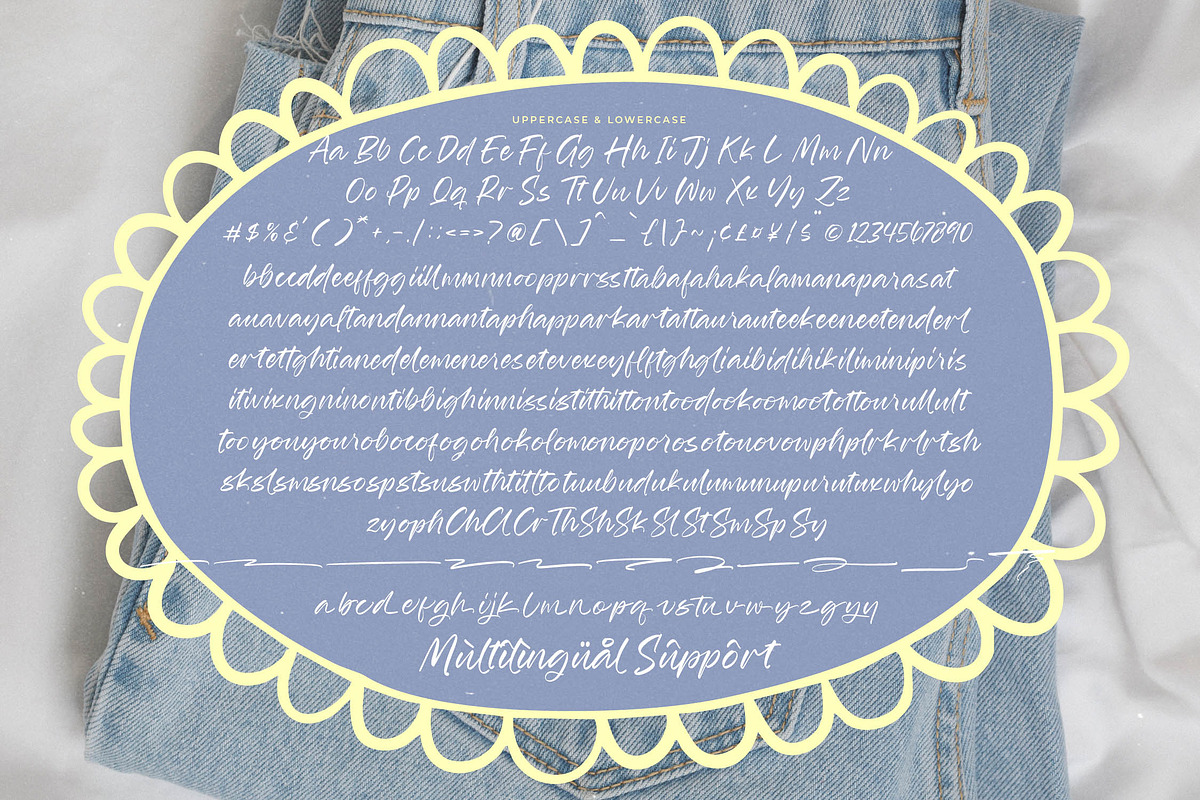 UPPERCASE & LOWERCASE
Aa Bb Cc Dd Ee Ff Gg Hh Ii Jj Kk L Mm Nn
Oo Pp Qq Rr Ss Tt Uu Vv Ww Xx Yy Zz
#$%&'()*+,-./:;<=>?@[\]^_`{|}~¡¢£¤¥¦§¨©1234567890
bbccddeeffggiillmmnnoopprrssttabafahakalamanaparasat
auavayaftandannantaphapparkartattaurauteekeeneetenderl
ertettghtianedelemeneresetevexeyflftghgliaibidihikiliminipiris
itivixngninontibbighinnissistithittontoodookoomootottourullult
tooyouyourobocofogohokolomonoporosotouovowphplrkrlrtsh
skslsmsnsospstsuswthtittlotuubudukulumunupurutuxwhylyo
zyophChClCrThShSkSlStSmSpSy
abcdefghijklmnopqrstuvwyzgyy
Mùltilingüål Sûppôrt